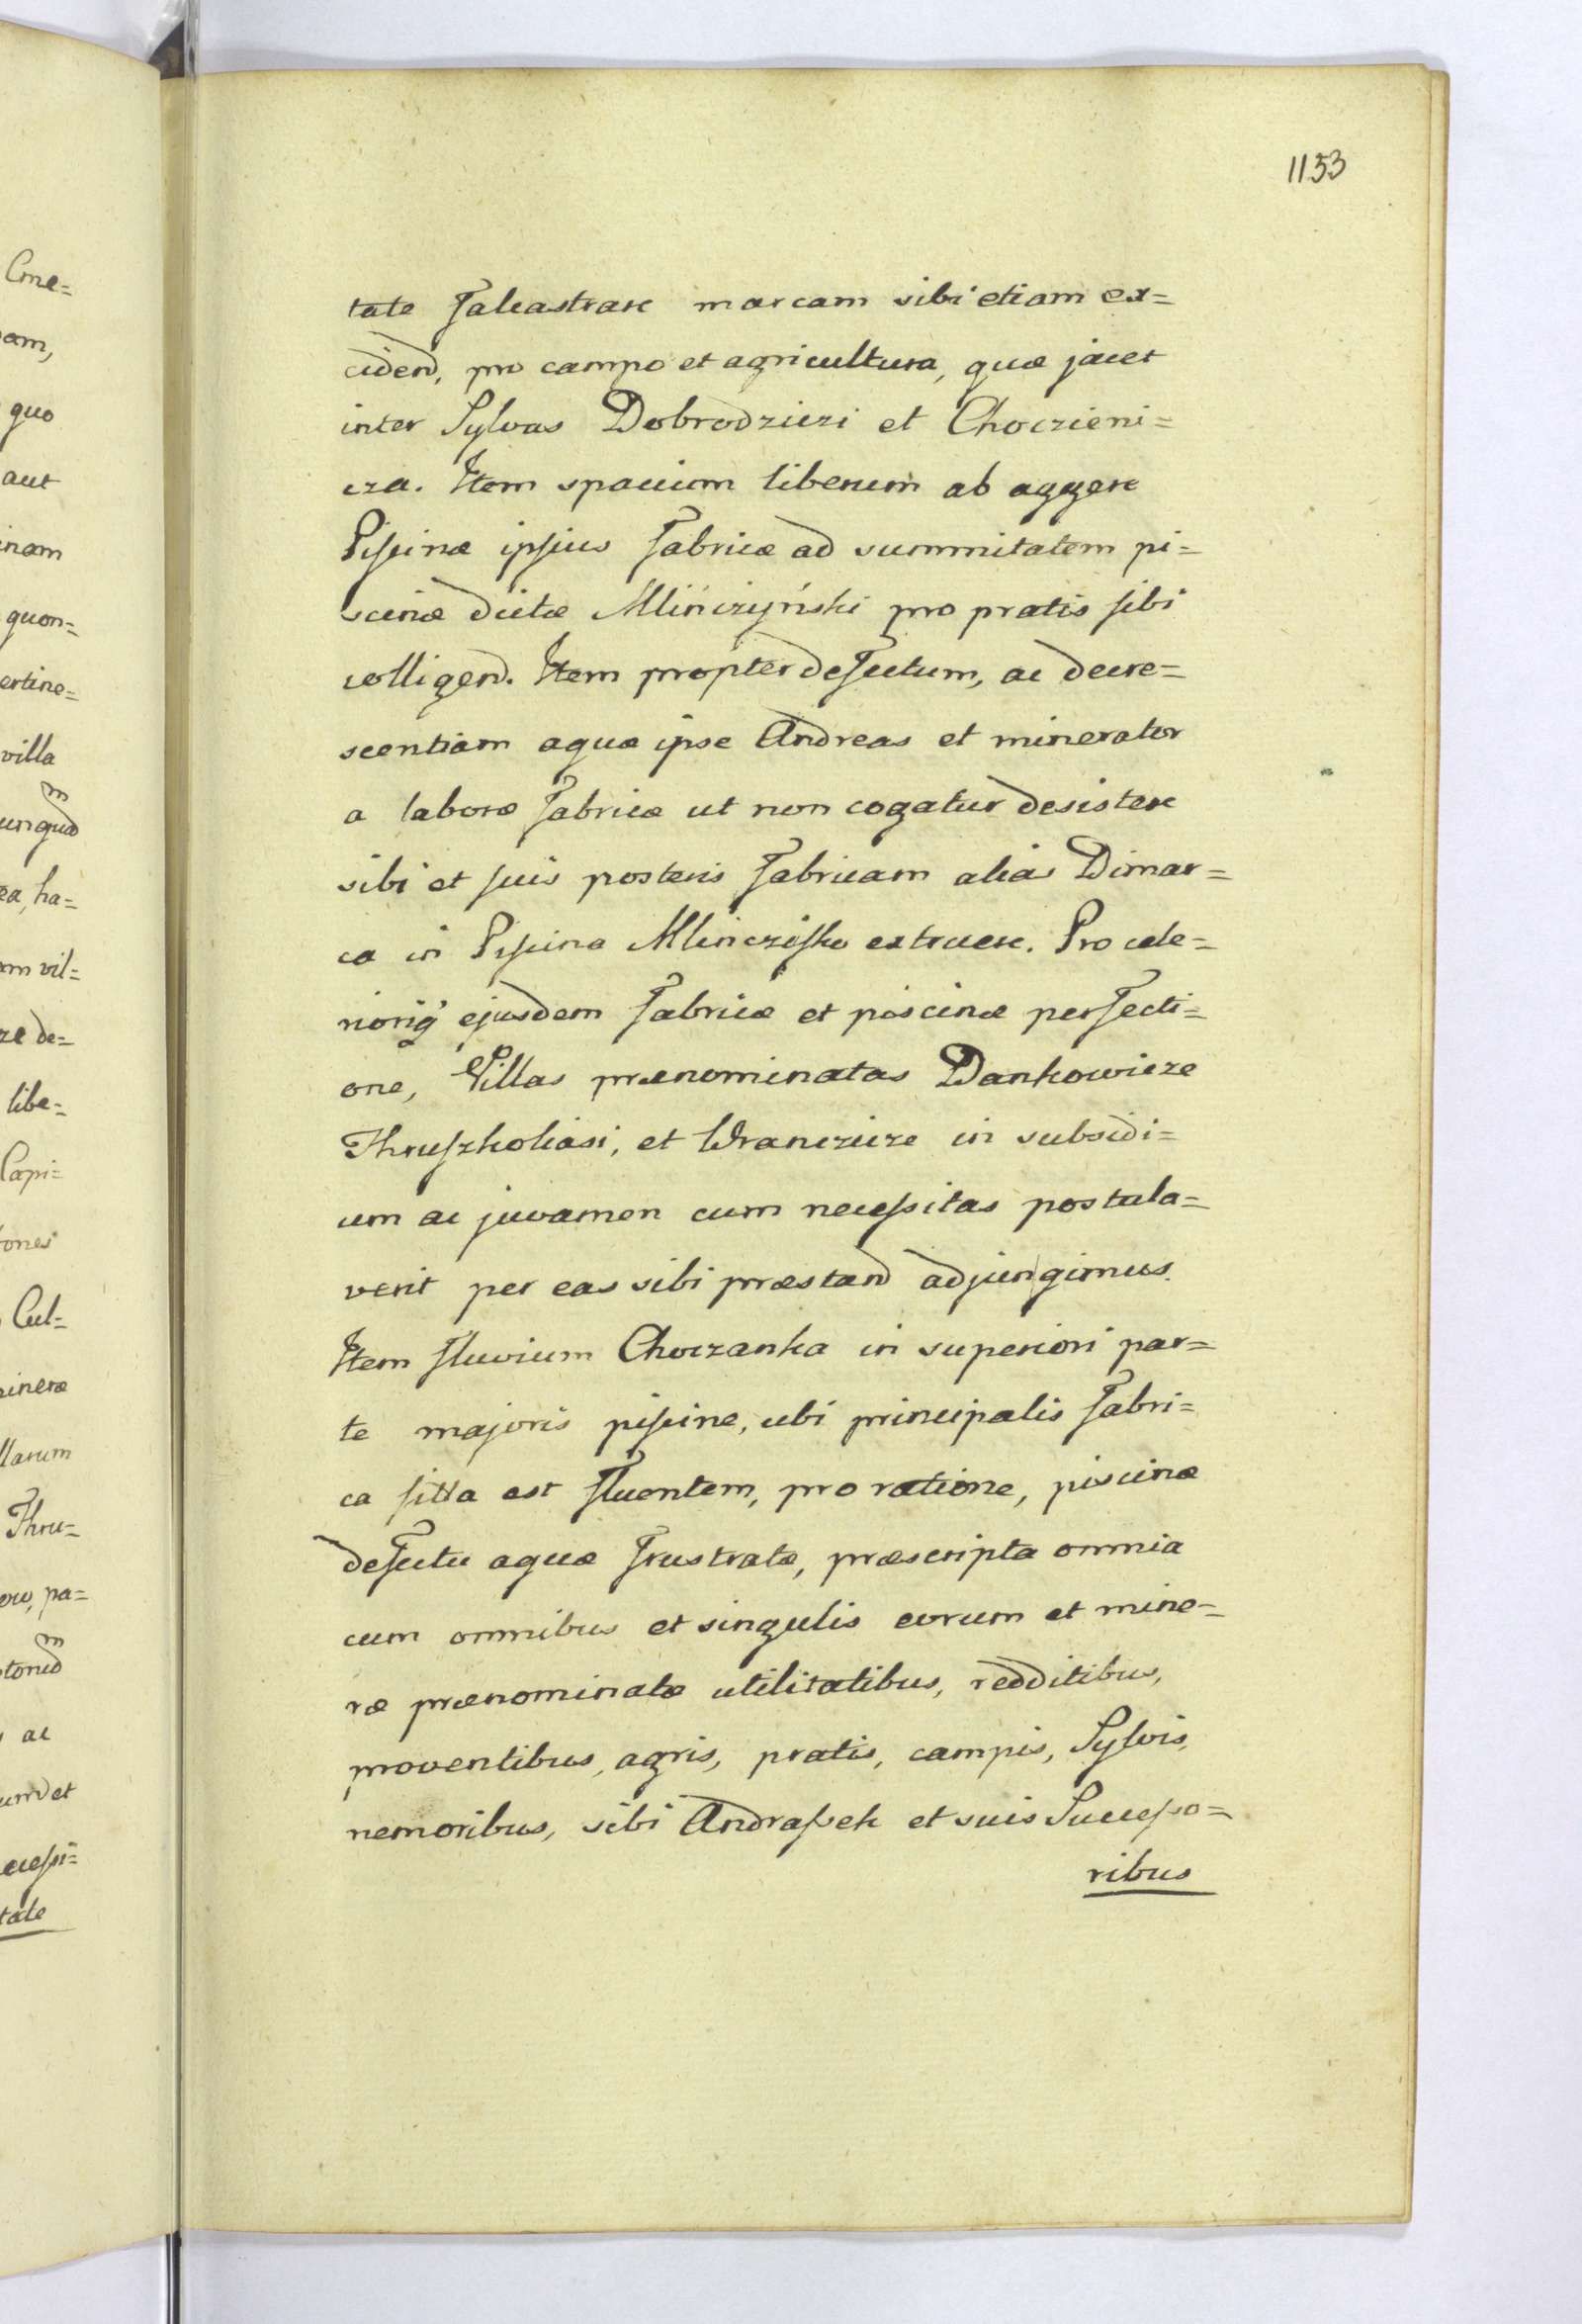 1153
Cme=
am,
quo
aut
inam
quon=
ertine=
villa
ea, ha=
am vil=
ze de=
libe=
Capi=
tones
Cul=
ineræ
llarum
Thru=
pa=
ac
et
cessi=
tate
tate falcastrare marcam sibi etiam ex=
cidend, pro campo et agricultura, quæ jacet
inter Sylvas Dobrodziczi et Choczieni=
cza. Item spacium liberum ab aggere
Piscinæ ipsius fabricæ ad summitatem pi=
scinæ dictæ Mlinczyński pro pratis sibi
colligend. Item propter defectum, ac decre=
scentiam aquæ ipse Andreas et minerator
a labore fabricæ ut non cogatur desistere
sibi et suis posteris fabricam alias Dimar=
ca in Piscina Mlinczisko extruere. Pro cele=
rioriq ejusdem fabricæ et piscinæ perfecti=
one, Villas prænominatas Dankowicze
Thruszkoliasi, et Wranczicze in subsidi=
um ac juvamen cum necessitas postula=
verit per eas sibi præstand adjungimus.
Item fluvium Choczanka in superiori par=
te majoris piscine, ubi principalis fabri=
ca sitta est fluentem, pro ratione, piscinæ
defectu aquæ frustratæ, præscripta omnia
cum omnibus et singulis eorum et mine=
ræ prænominatæ utilitatibus, redditibus,
proventibus, agris, pratis, campis, Sylvis,
nemoribus, sibi Andraszek et suis Successo=
ribus